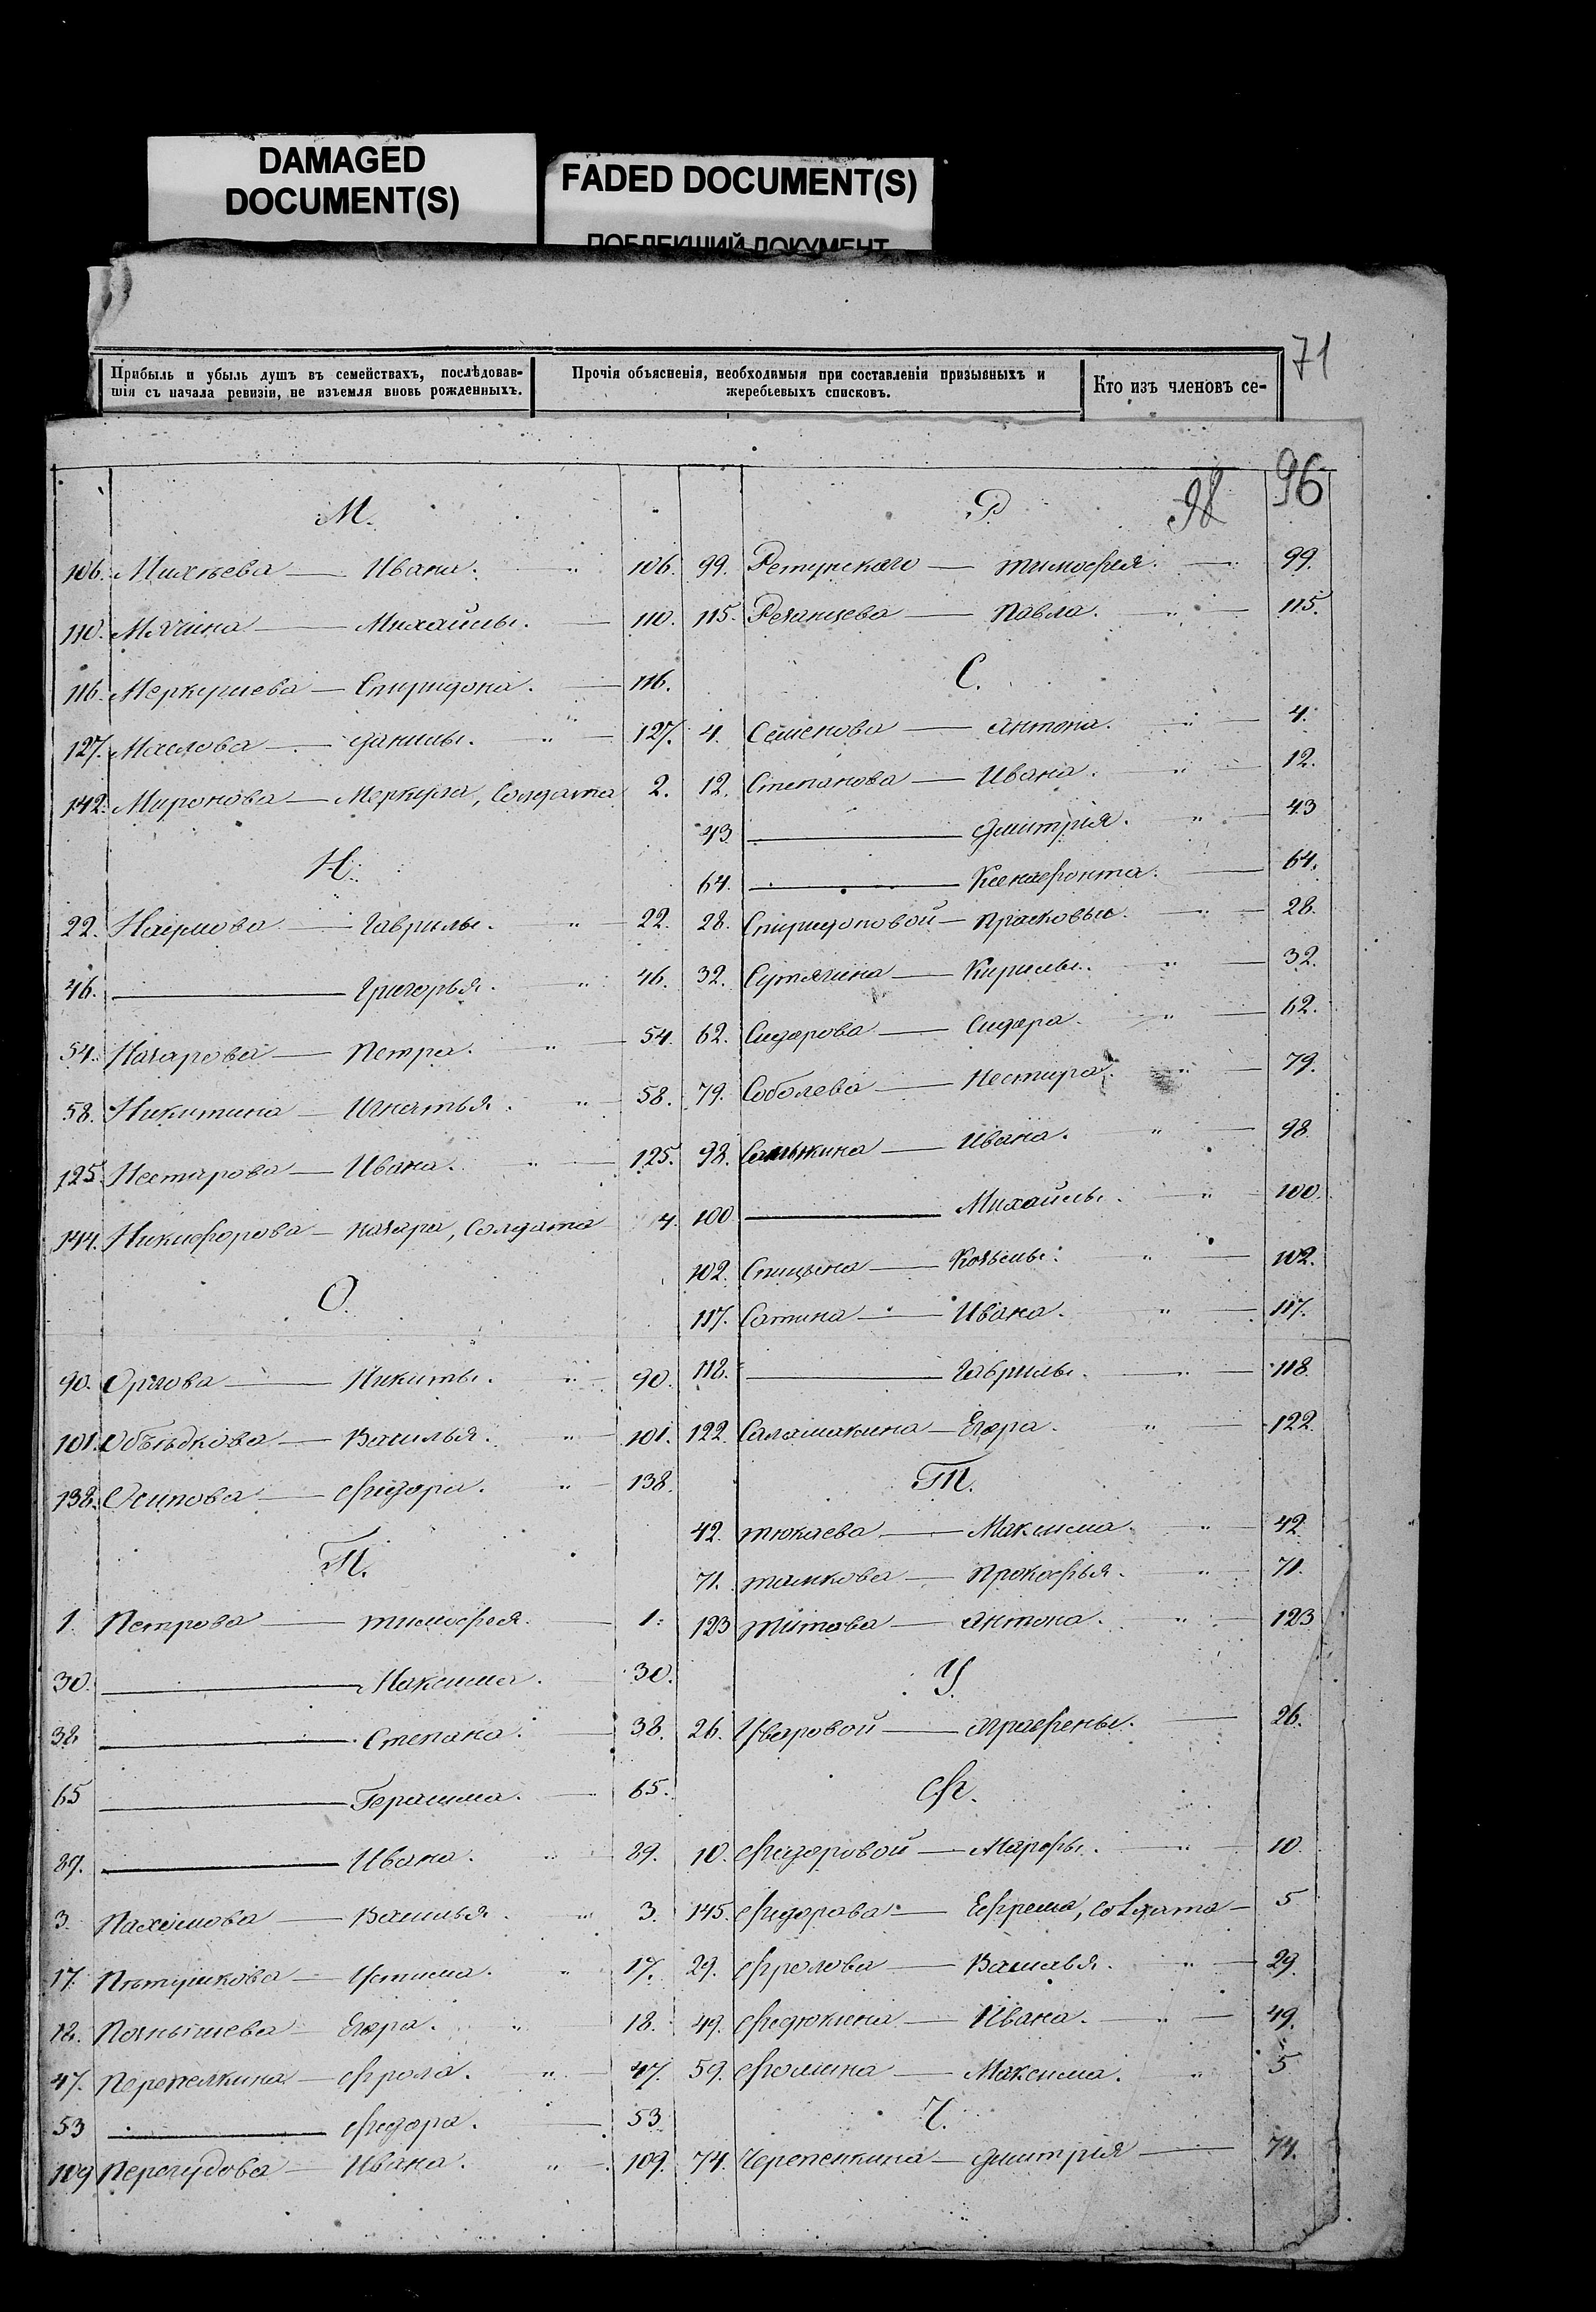 DAMAGED
DOCUMENT(S)
FADED DOCUMENT(S)
ПОБЛЕКШИЙ ДОКУМЕНТ
71
Прибыль и убыль душъ въ семействахъ, послѣдовав-
шія съ начала ревизіи, не изъемля вновь рожденныхъ.
Прочія объясненія, необходимыя при составленіи призывныхъ и
жеребьевыхъ списковъ.
Кто изъ членовъ се-
96
98
М.
106. Михѣева — Ивана. " 106.
110. Мячина — Михайлы. — 110.
116. Меркулиева — Спиридона. — 116.
127. Маслова — Данилы. " 127.
142. Миронова — Меркула, Солдата 2.
Н.
22. Наумова — Гаврилы. " 22.
46. — Григорья. " 46.
54. Назарова — Петра. " 54.
58. Никитина — Игнатья. " 58.
125. Нестирова — Ивана. " 125.
144. Никифорова — Назара, Солдата 4.
О.
90. Орлова — Никиты. " 90.
101. Объѣдкова — Василья. " 101.
138. Осипова — Фидора. " 138.
П.
1. Петрова — Тимофея. — 1.
30. — Максима. — 30.
38 — Степана. — 38.
65 — Герасима. — 65.
89. — Ивана. " 89.
3. Пахомова — Василья. " 3.
17. Пѣтушкова — Устина. " 17.
18. Познышева — Егора. " 18.
47. Перепелкина — Фрола. " 47.
53 — Фидора. — 53
109 Перегудова — Ивана. " 109.
Р.
99. Ретунскаго — Тимофея. " 99.
115. Резанцева — Павла. " 115.
С.
4. Семенова — Антона. " 4.
12. Степанова — Ивана. " 12.
43 — Дмитрія. " 43
64. — Ксенофонта. — 64.
28. Спиридоновой — Прасковьи. " 28.
32. Сутягина — Кирилы. " 32.
62. Сидорова — Сидора. " 62.
79. Соболева — Нестира. " 79.
98. Ивана. " 98.
100 — Михайлы. " 100.
102. Спицына — Козьмы. " 102.
117. Сатина — Ивана. " 117.
118. — Гаврилы. " 118.
122. Саламакина — Егора. " 122.
Т.
42. Тюкаева — Максима. " 42.
71. Талыкова — Прокофья. " 71.
123 Титова — Антона. " 123
У.
26. Уваровой — Аграфены. — 26.
Ф.
10. Фидоровой — Марфы. " 10
145. Фидорова — Ефрема, Солдата — 5
29. Фролова — Василья. " 29.
49. Федюкина — Ивана. " 49.
59. Фомина — Максима. " 5
Ч.
74. Черепенкина — Дмитрія — 74.